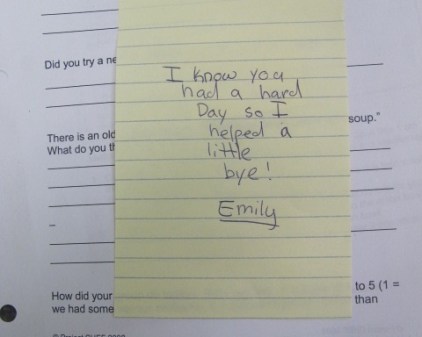 Did you try a ne
I know you
had a hard
Day so I
helped a
little
bye!
Emily
There is an old
What do you th
soup."
How did your
we had some
to 5 (1 =
than